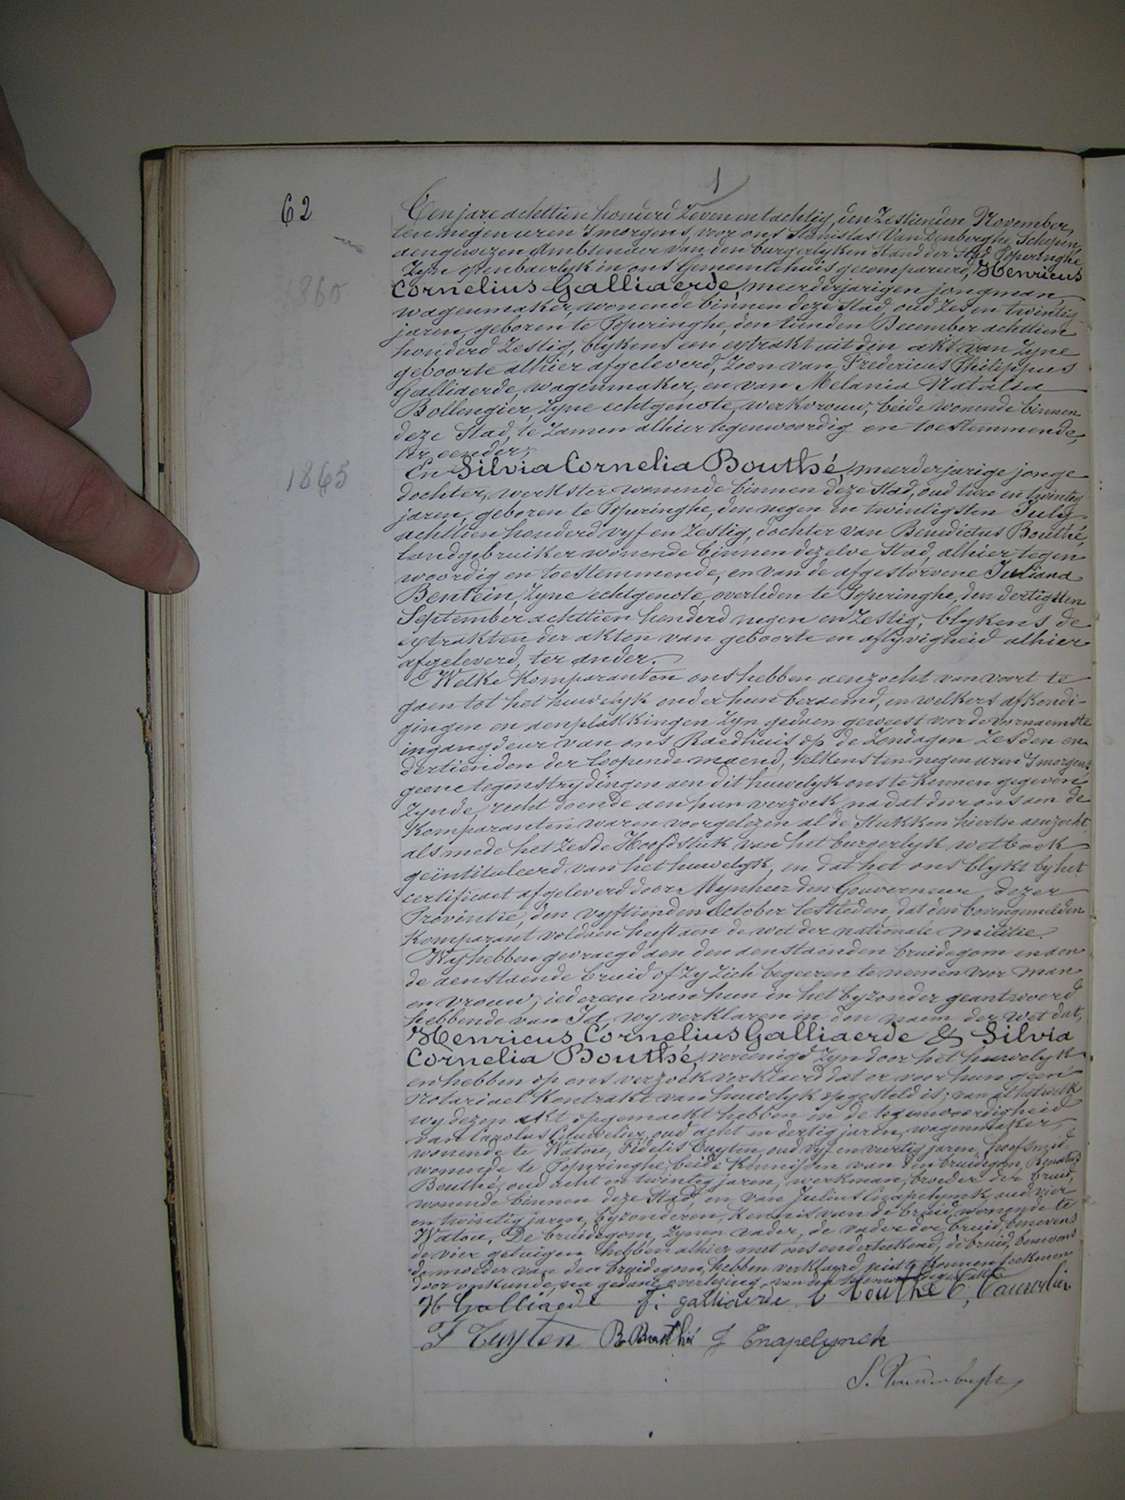 62
1860
1865
Ten jare achttien honderd Zeven en tachtig, den Zestienden November,
ten negen uren 's morgens, voor ons Stanislas Van Denberghe Schepen,
aengewezen Ambtenaer van den burgerlyken Stand der Stad Poperinghe
Zyn openbaerlyk in ons Gemeentehuis gecompareerd, Henricus
Cornelius Galliaerde, meerderjarigen jongman,
wagenmaker, wonende binnen deze Stad, oud Zes en twintig
jaren, geboren te Poperinghe, den tienden December achttien
honderd Zestig, blykens een extrakt uit den akt van Zyne
geboorte alhier afgeleverd, Zoon van Fredericus Philippus
Galliaerde, wagenmaker, en van Melania Natalia
Bollengier, Zyne echtgenote, werkvrouw, beide wonende binnen
deze Stad, te Zamen alhier tegenwoordig en toestemmende,
ter eender;
En Silvia Cornelia Bouthé, meerderjarige jonge
dochter, werkster wonende binnen deze Stad, oud twee en twintig
jaren, geboren te Poperinghe, den negen en twintigsten July
achttien honderd vyf en Zestig, dochter van Benedictus Bouthé,
landgebruiker wonende binnen dezelve Stad, alhier tegen
woordig en toestemmende, en van de afgestorvene Juliana
Bentein, Zyne echtgenote, overleden te Poperinghe, den dertigsten
September achttien honderd negen en Zestig, blykens de
extrakten der akten van geboorte en aflyvigheid alhier
afgeleverd, ter ander.
Welke Komparanten ons hebben aenzocht van voort te
gaen tot het huwelyk onder hun beraemd, en welkers afkondi-
gingen en aenplakkingen Zyn gedaen geweest voor de voornaemste
ingangdeur van ons Raedhuis op de Zondagen Zesden en
dertienden der loopende maend, telkens ten negen uren 's morgens,
geene tegenstrydingen aen dit huwelyk ons te kennen gegeven
Zynde, recht doende aen hun verzoek, na dat door ons aen de
Komparanten waren voorgelezen al de Stukken hiertoe aenzocht,
als mede het Zesde Hoofdstuk van het burgerlyk wetboek
geïntituleerd van het huwelyk, en dat het ons blykt by het
certificaet afgeleverd door Mynheer den Gouverneur dezer
Provintie, den vyftienden October lestleden, dat den bovengemelden
Komparant voldaen heeft aen de wet der nationale militie.
Wy hebben gevraegd aen den aenstaenden bruidegom en aen
de aenstaende bruid of Zy Zich begeeren te nemen voor man
en vrouw; iedereen van hun in het byzonder geantwoord
hebbende van Ja, wy verklaren in den naem der wet dat,
Henricus Cornelius Galliaerde & Silvia
Cornelia Bouthé, vereenigd Zyn door het huwelyk
en hebben op ons verzoek verklaerd dat er voor hun geen
notariael Kontrakt van huwelyk opgesteld is; van al hetwelk
wy dezen akt opgemaekt hebben in de tegenwoordigheid
van Carolus oud acht en dertig jaren, wagenmaker,
wonende te Watou, Fidelis Tuyten, oud vyf en veertig jaren, hoefsmid
wonende te Poperinghe, beide Kennissen van den bruidegom,
Bouthé, oud acht en twintig jaren, werkman, broeder der bruid,
wonende binnen deze Stad, en van Julius Cnapelynck, oud vier
en twintig jaren, byzonderen, Kennis van de bruid, wonende te
Watou. De bruidegom, Zynen vader, de vader der bruid, benevens
de vier getuigen hebben alhier met ons onderteekend, de bruid, benevens
de moeder van den bruidegom hebben verklaerd niet te Konnen teekenen
door onkunde, na gedane voorlezing van den
H Galliaerde f: galliaerde b Bouthé C, Cauwelier
F Tuyten B Bouthé J Cnapelynck
S. Vandenberghe